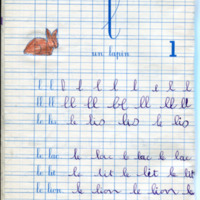 l
un lapin
1
l l l l l l l e l l
ll ll ll ll ll ll ll
le lis le lis lis le lis
le lac le lac le lac le lac
le lit le lit le lit le lit
le lion le lion le lion le